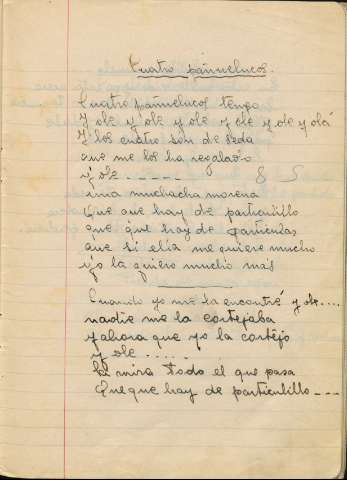 Cuatro pañuelucos.
Cuatro pañuelucos tengo
Y ole y ole y ole y ole y ole y olá
Y los cuatro son de seda
que me los ha regalado
y ole - - - - - 8 S
una muchacha morena
Que que hay de particulillo
que qué hay de particular
que si ella me quiere mucho
yo la quiero mucho más
Cuando yo me la encontré y ole....
nadie me la cortejaba
y ahora que yo la cortejo
y ole .....
la mira todo el que pasa
Que que hay de particulillo - - -